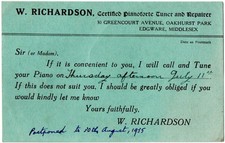 W. RICHARDSON, Certified Pianoforte Tuner and Repairer
10 GREENCOURT AVENUE, OAKHURST PARK
EDGWARE, MIDDLESEX
Date as Postmark
Sir (or Madam),
If it is convenient to you, I will call and Tune
your Piano on Thursday afternoon July 11th
If this does not suit you. I should be greatly obliged if you
would kindly let me know
Yours faithfully,
W. RICHARDSON
Postponed to 10th August, 1935